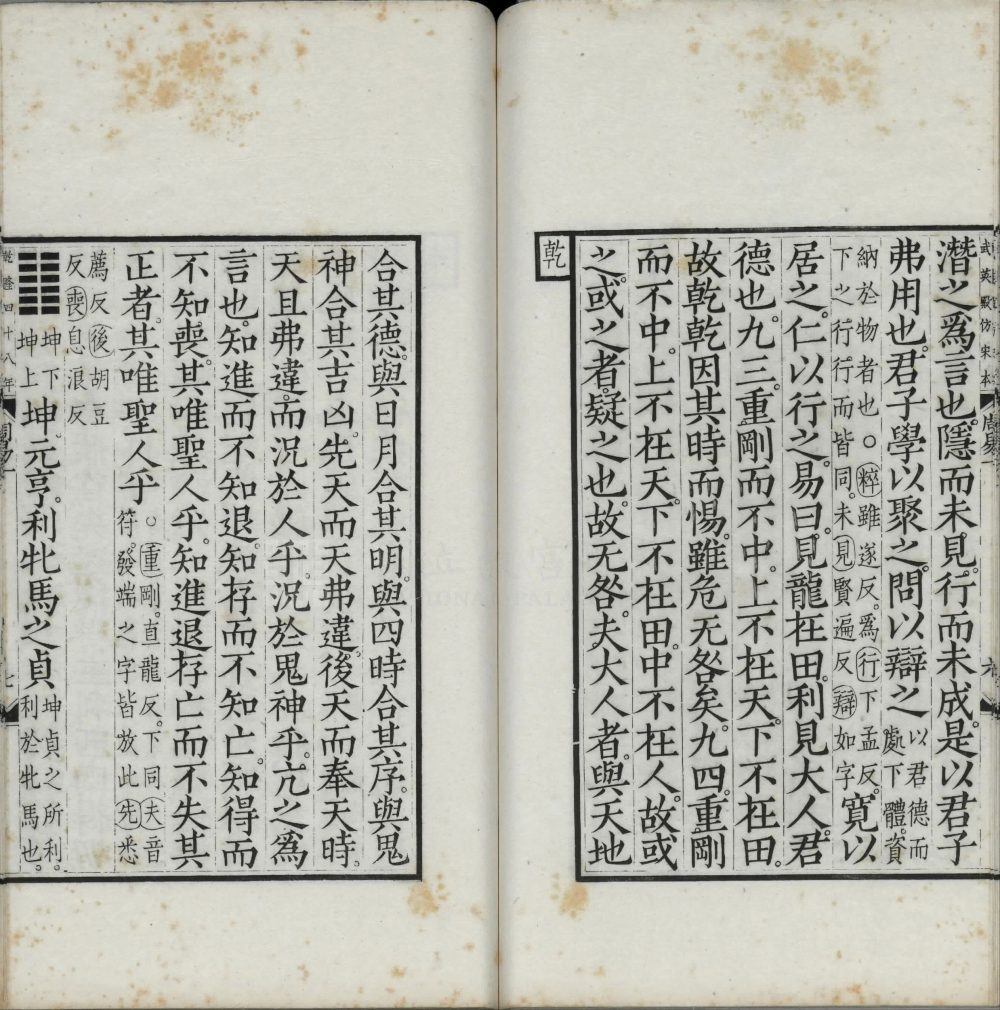 武英殿仿宋本 周易一 六
潛之爲言也。隱而未見。行而未成。是以君子
弗用也。君子學以聚之。問以辯之
以君德而
處下體。資
納於物者也○粹雖遂反。爲行下孟反。
下之行行而皆同。未見賢遍反辯如字
寬以
居之。仁以行之。易曰。見龍在田。利見大人。君
德也。九三。重剛而不中。上不在天。下不在田。
故乾乾因其時而惕。雖危无咎矣。九四。重剛
而不中。上不在天。下不在田。中不在人。故或
之。或之者。疑之也。故无咎。夫大人者。與天地
乾
合其德。與日月合其明。與四時合其序。與鬼
神合其吉凶。先天而天弗違。後天而奉天時。
天且弗違。而況於人乎。況於鬼神乎。亢之爲
言也。知進而不知退。知存而不知亡。知得而
不知喪。其唯聖人乎。知進退存亡而不失其
正者。其唯聖人乎
○重剛。直龍反。下同夫音
符。發端之字皆放此先悉
薦反後胡豆
反喪息浪反
䷁
坤下
坤上
坤。元亨。利牝馬之貞
坤貞之所利。
利於牝馬也。
乾隆四十八年 周易一 七